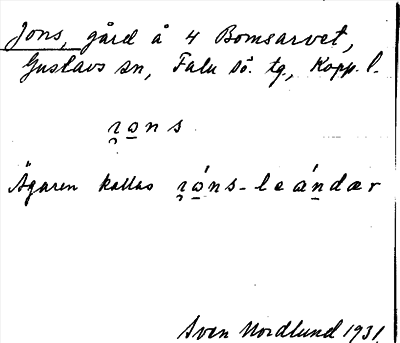 Jons, gård å 4 Bomsarvet,
Gustavs sn, Falu sö. tg, Kopp. l.
ɀo̲ns
Ägaren kallas ɀó̲ns-leán̲dær
Sven Nordlund 1931.